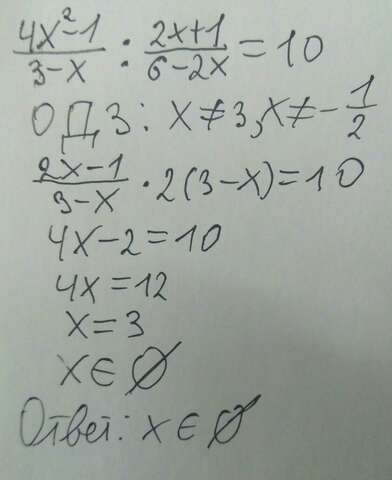 (4x²-1)/(3-x) : (2x+1)/(6-2x) = 10
ОДЗ: x≠3, x≠-1/2
(2x-1)/(3-x) · 2(3-x) = 10
4x-2=10
4x=12
x=3
x∈∅
Ответ: x∈∅